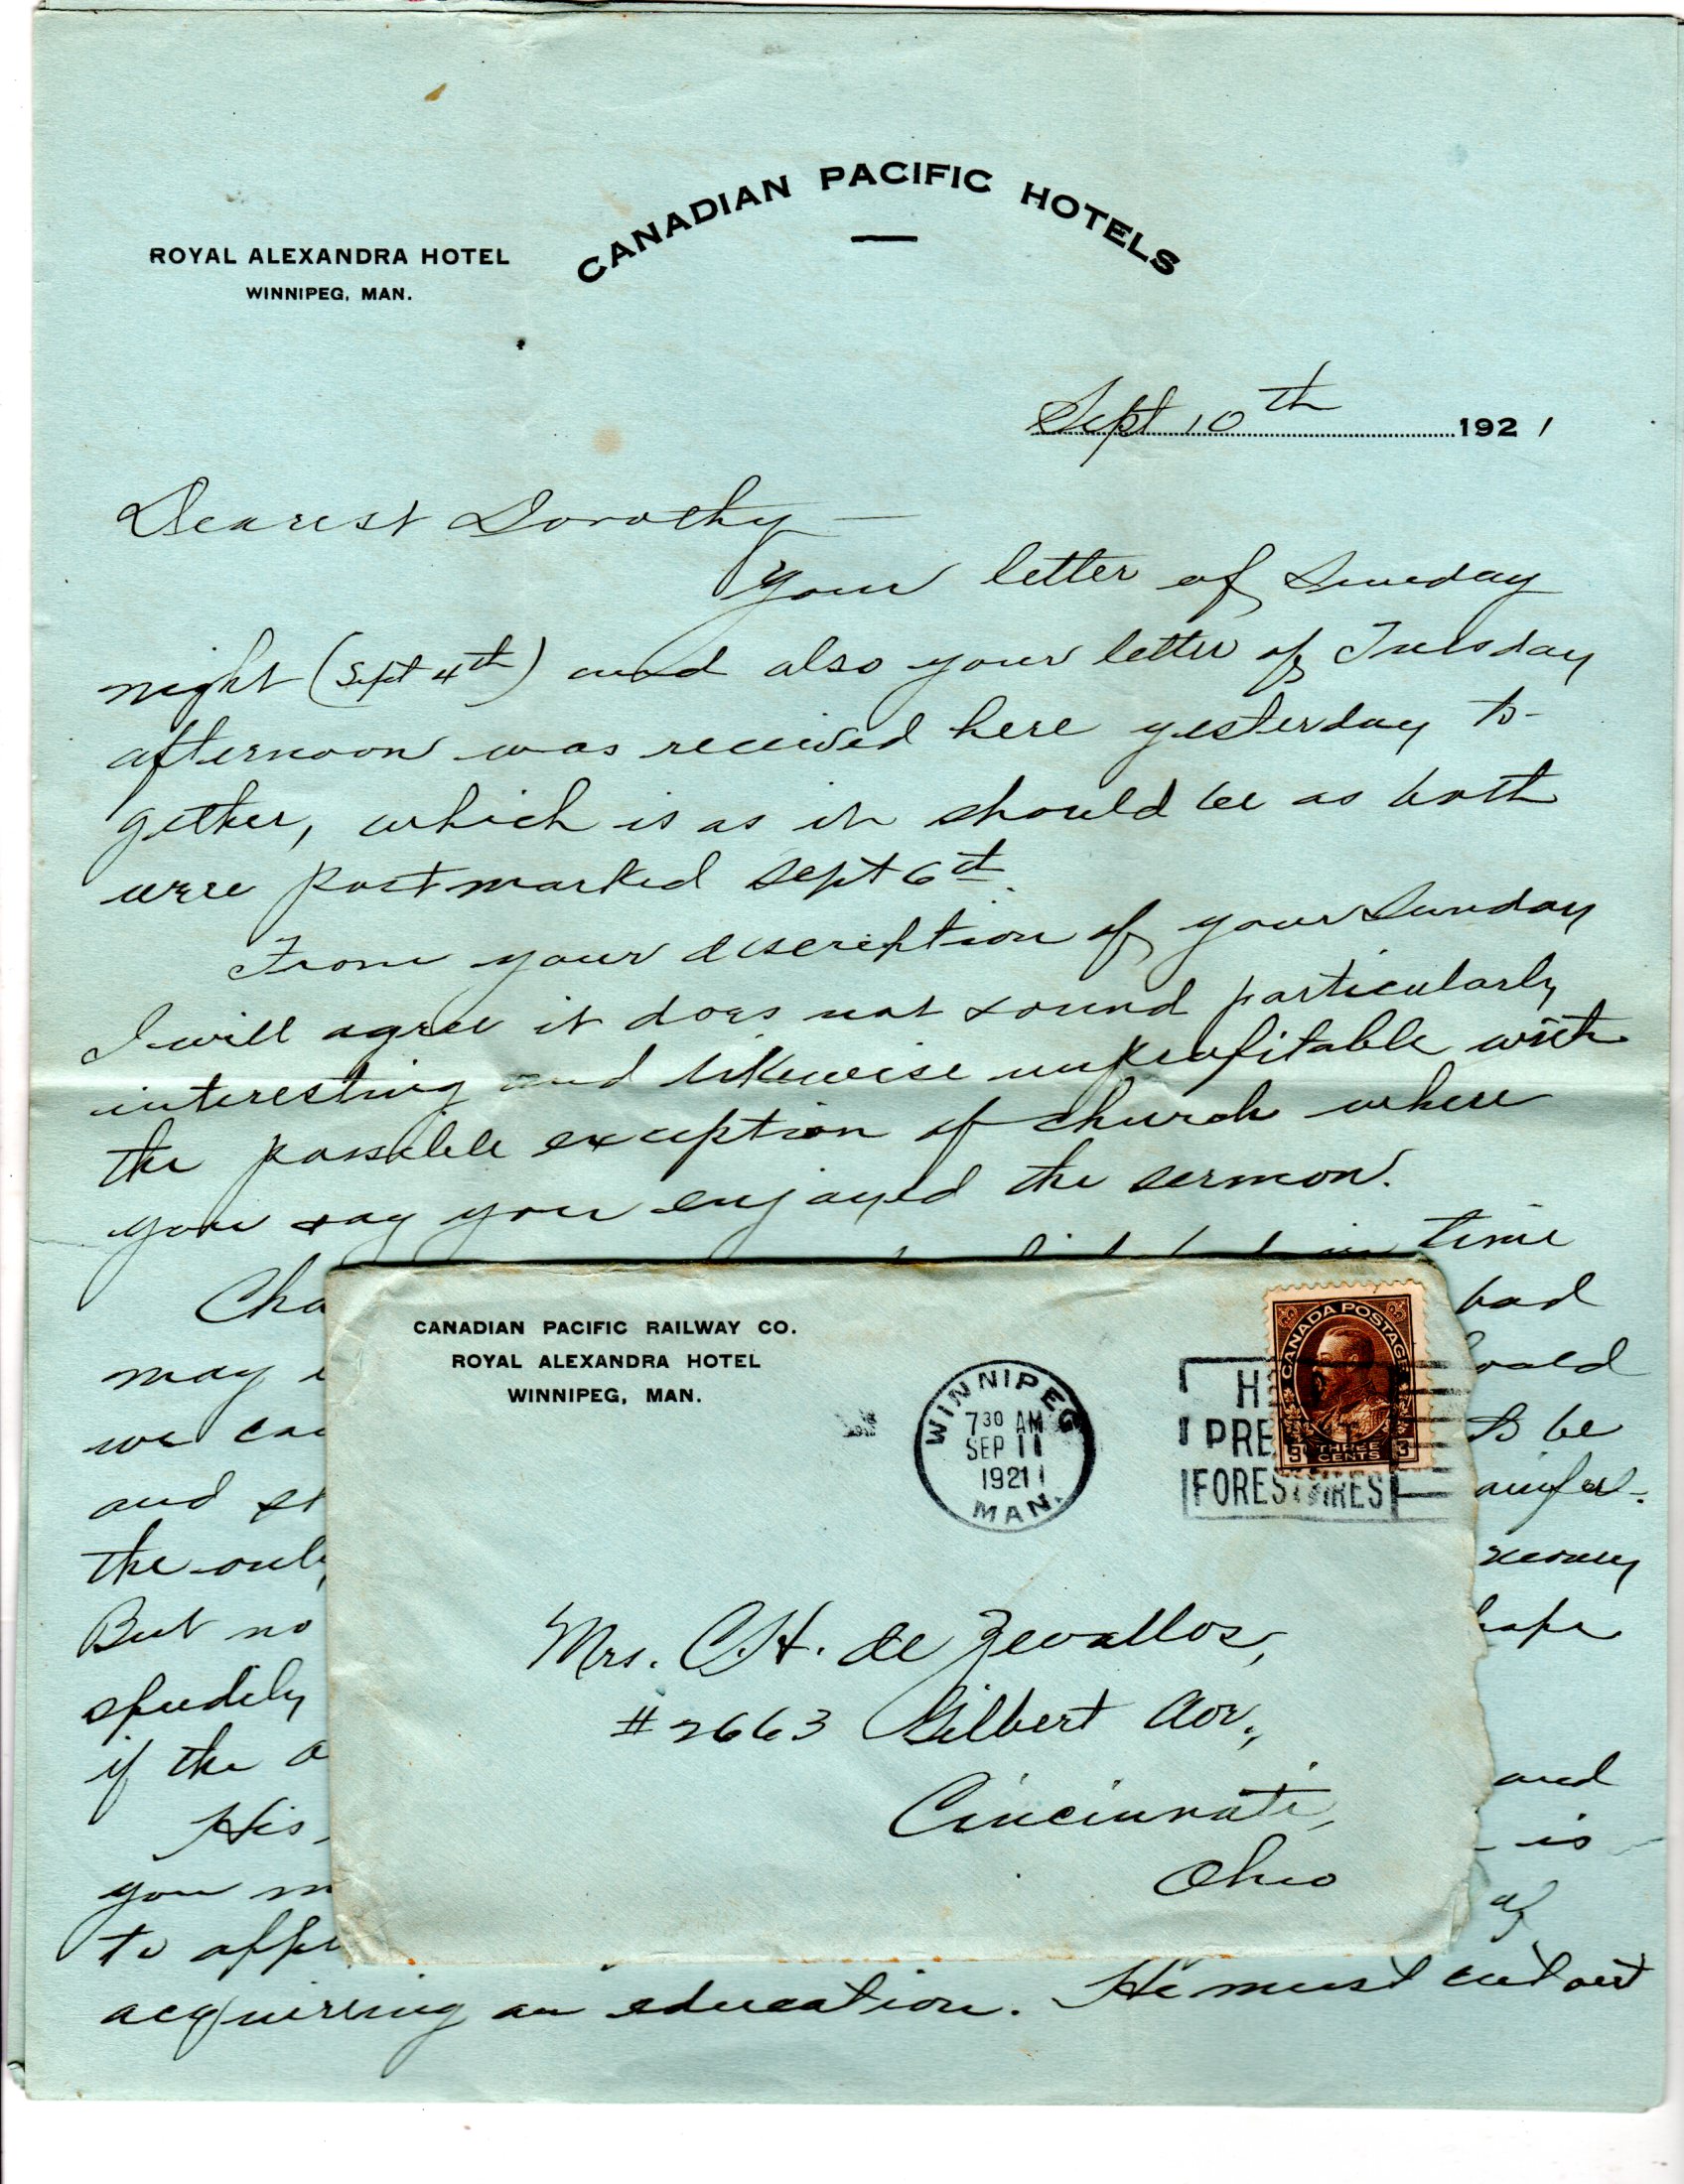 CANADIAN PACIFIC HOTELS
ROYAL ALEXANDRA HOTEL
WINNIPEG, MAN.
Sept 10th 1921
Dearest Dorothy —
Your letter of Sunday
night (Sept 4th) and also your letter of Tuesday
afternoon was received here yesterday to-
gether, which is as it should be as both
were postmarked Sept 6th.
From your discreption of your Sunday
I will agree it does not sound particularly
interesting and likewise unprofitable with
the possible exception of church where
you say you enjoyed the sermon.
Cha in time
may bad
we can
and st to be
the only
But no hope
speedily
if the a and
His is
you m of
to appr
acquiring an education. He must cut out
CANADIAN PACIFIC RAILWAY CO.
ROYAL ALEXANDRA HOTEL
WINNIPEG, MAN.
WINNIPEG
7 30 AM
SEP 11
1921
MAN.
H
PRE
FOREST FIRES
CANADA POSTAGE
3 THREE 3
CENTS
Mrs. C.H. de Zevallos,
#2663 Gilbert Ave.,
Cincinnati,
Ohio